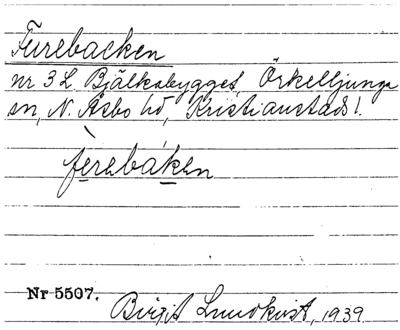 Furebacken
nr 3 L. Bjälkabygget, Örkelljunga
sn, N. Åsbo hd, Kristianstads l.
ferebáken
Nr 5507.
Birgit Lundkvist, 1939